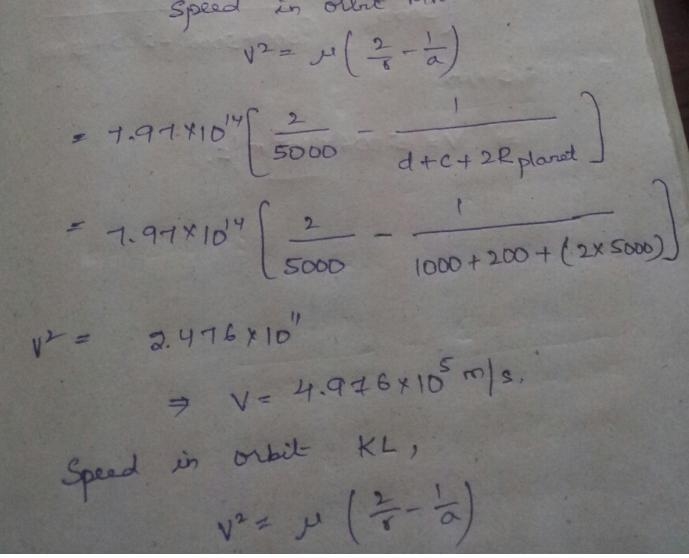 Speed in orbit
v² = μ ( 2/r - 1/a )
= 7.97×10¹⁴ [ 2/5000 - 1/(d+c+2R planet) ]
= 7.97×10¹⁴ [ 2/5000 - 1/(1000+200+(2×5000)) ]
v² = 2.476×10¹¹
⇒ v = 4.976×10⁵ m/s.
Speed in orbit KL,
v² = μ ( 2/r - 1/a )